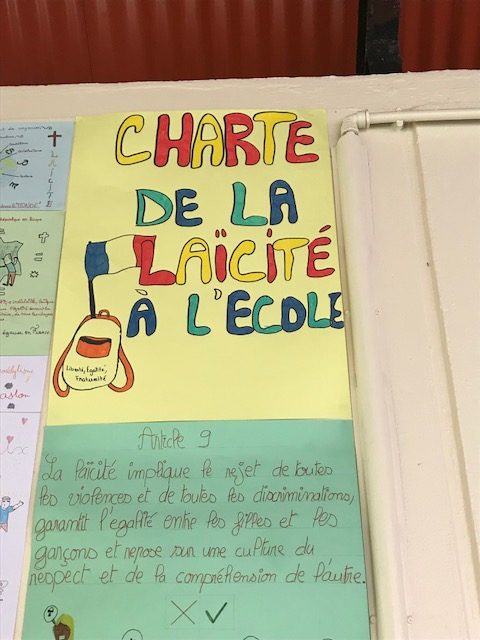 CHARTE
DE LA
LAÏCITÉ
À L'ECOLE
Liberté, Egalité,
Fraternité
Article 9
La laïcité implique le rejet de toutes
les violences et de toutes les discriminations,
garantit l'egalité entre les filles et les
garçons et repose sur une culture du
respect et de la compréhension de l'autre.
LAICITE